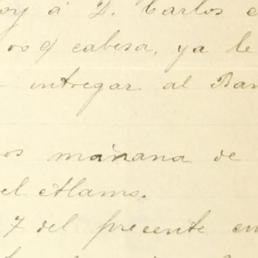 oy á D. Carlos
os q̃ cabesa, ya le
entregar al Ban
os mañana de
el Alamo.
7 del presente en